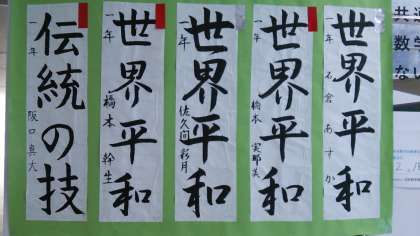 世界平和
一年 石倉 あすか
世界平和
一年 橋本 実耶美
世界平和
一年 佐久間彩月
世界平和
一年 橋本 幹生
伝統の技
一年 阪口真大
数学